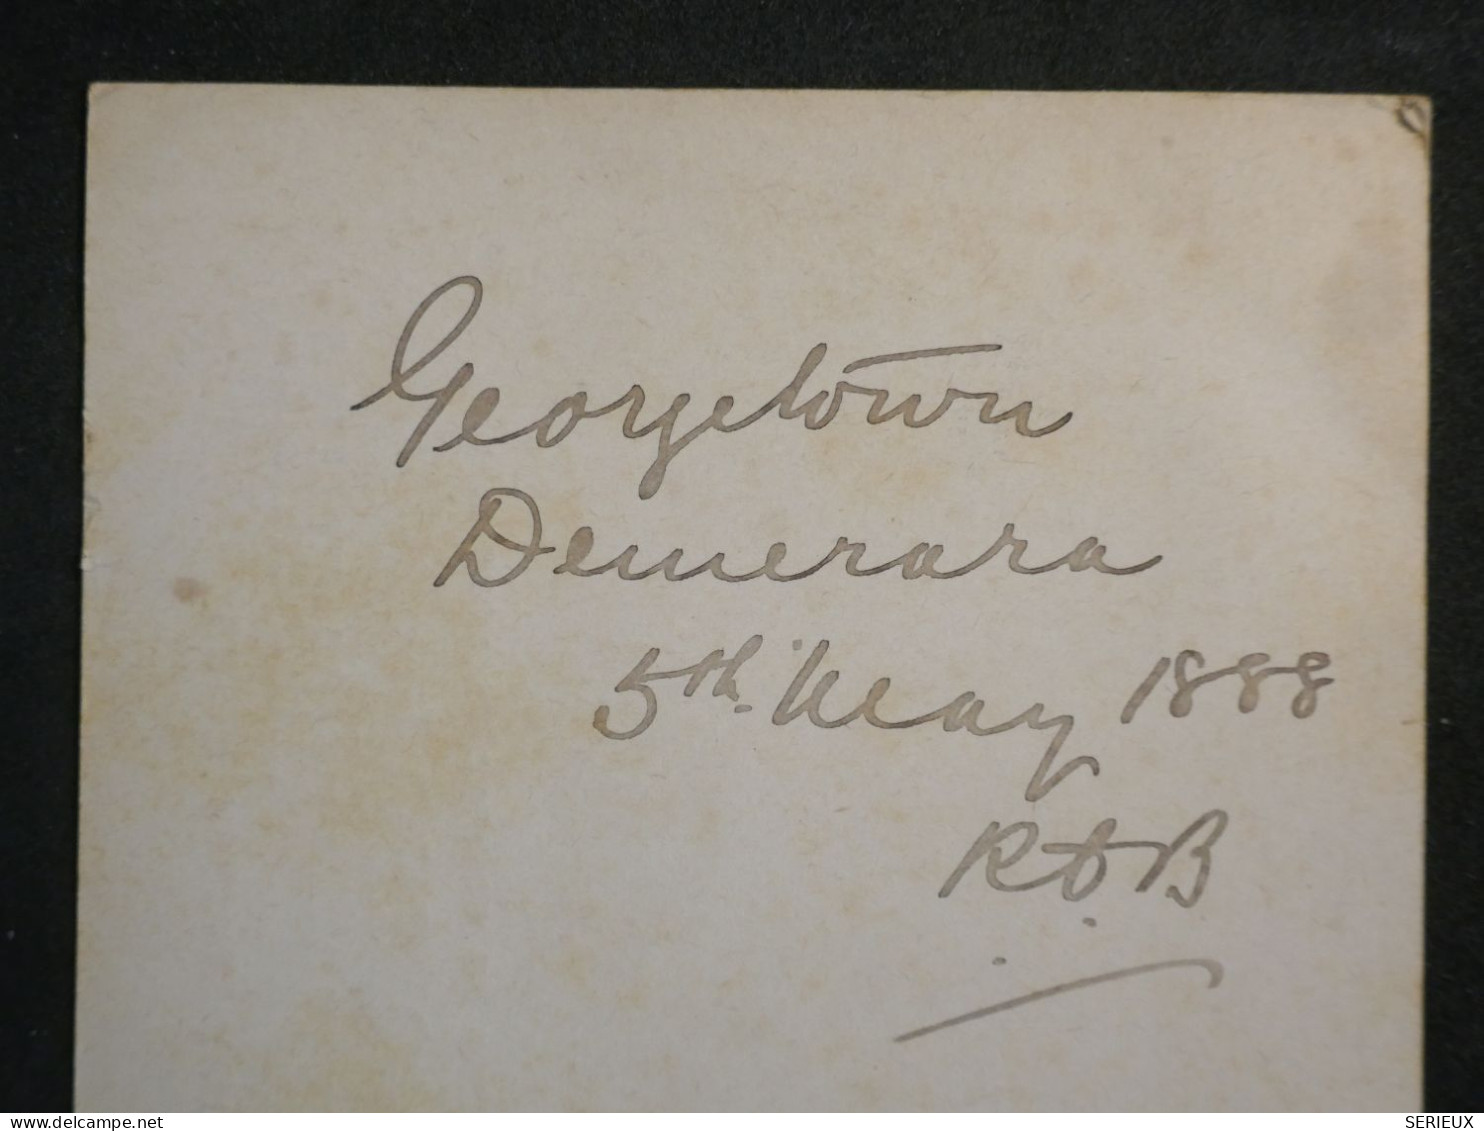 Georgetown
Demerara
5th. May 1888
R.A.B
delcampe.net
SERIEUX